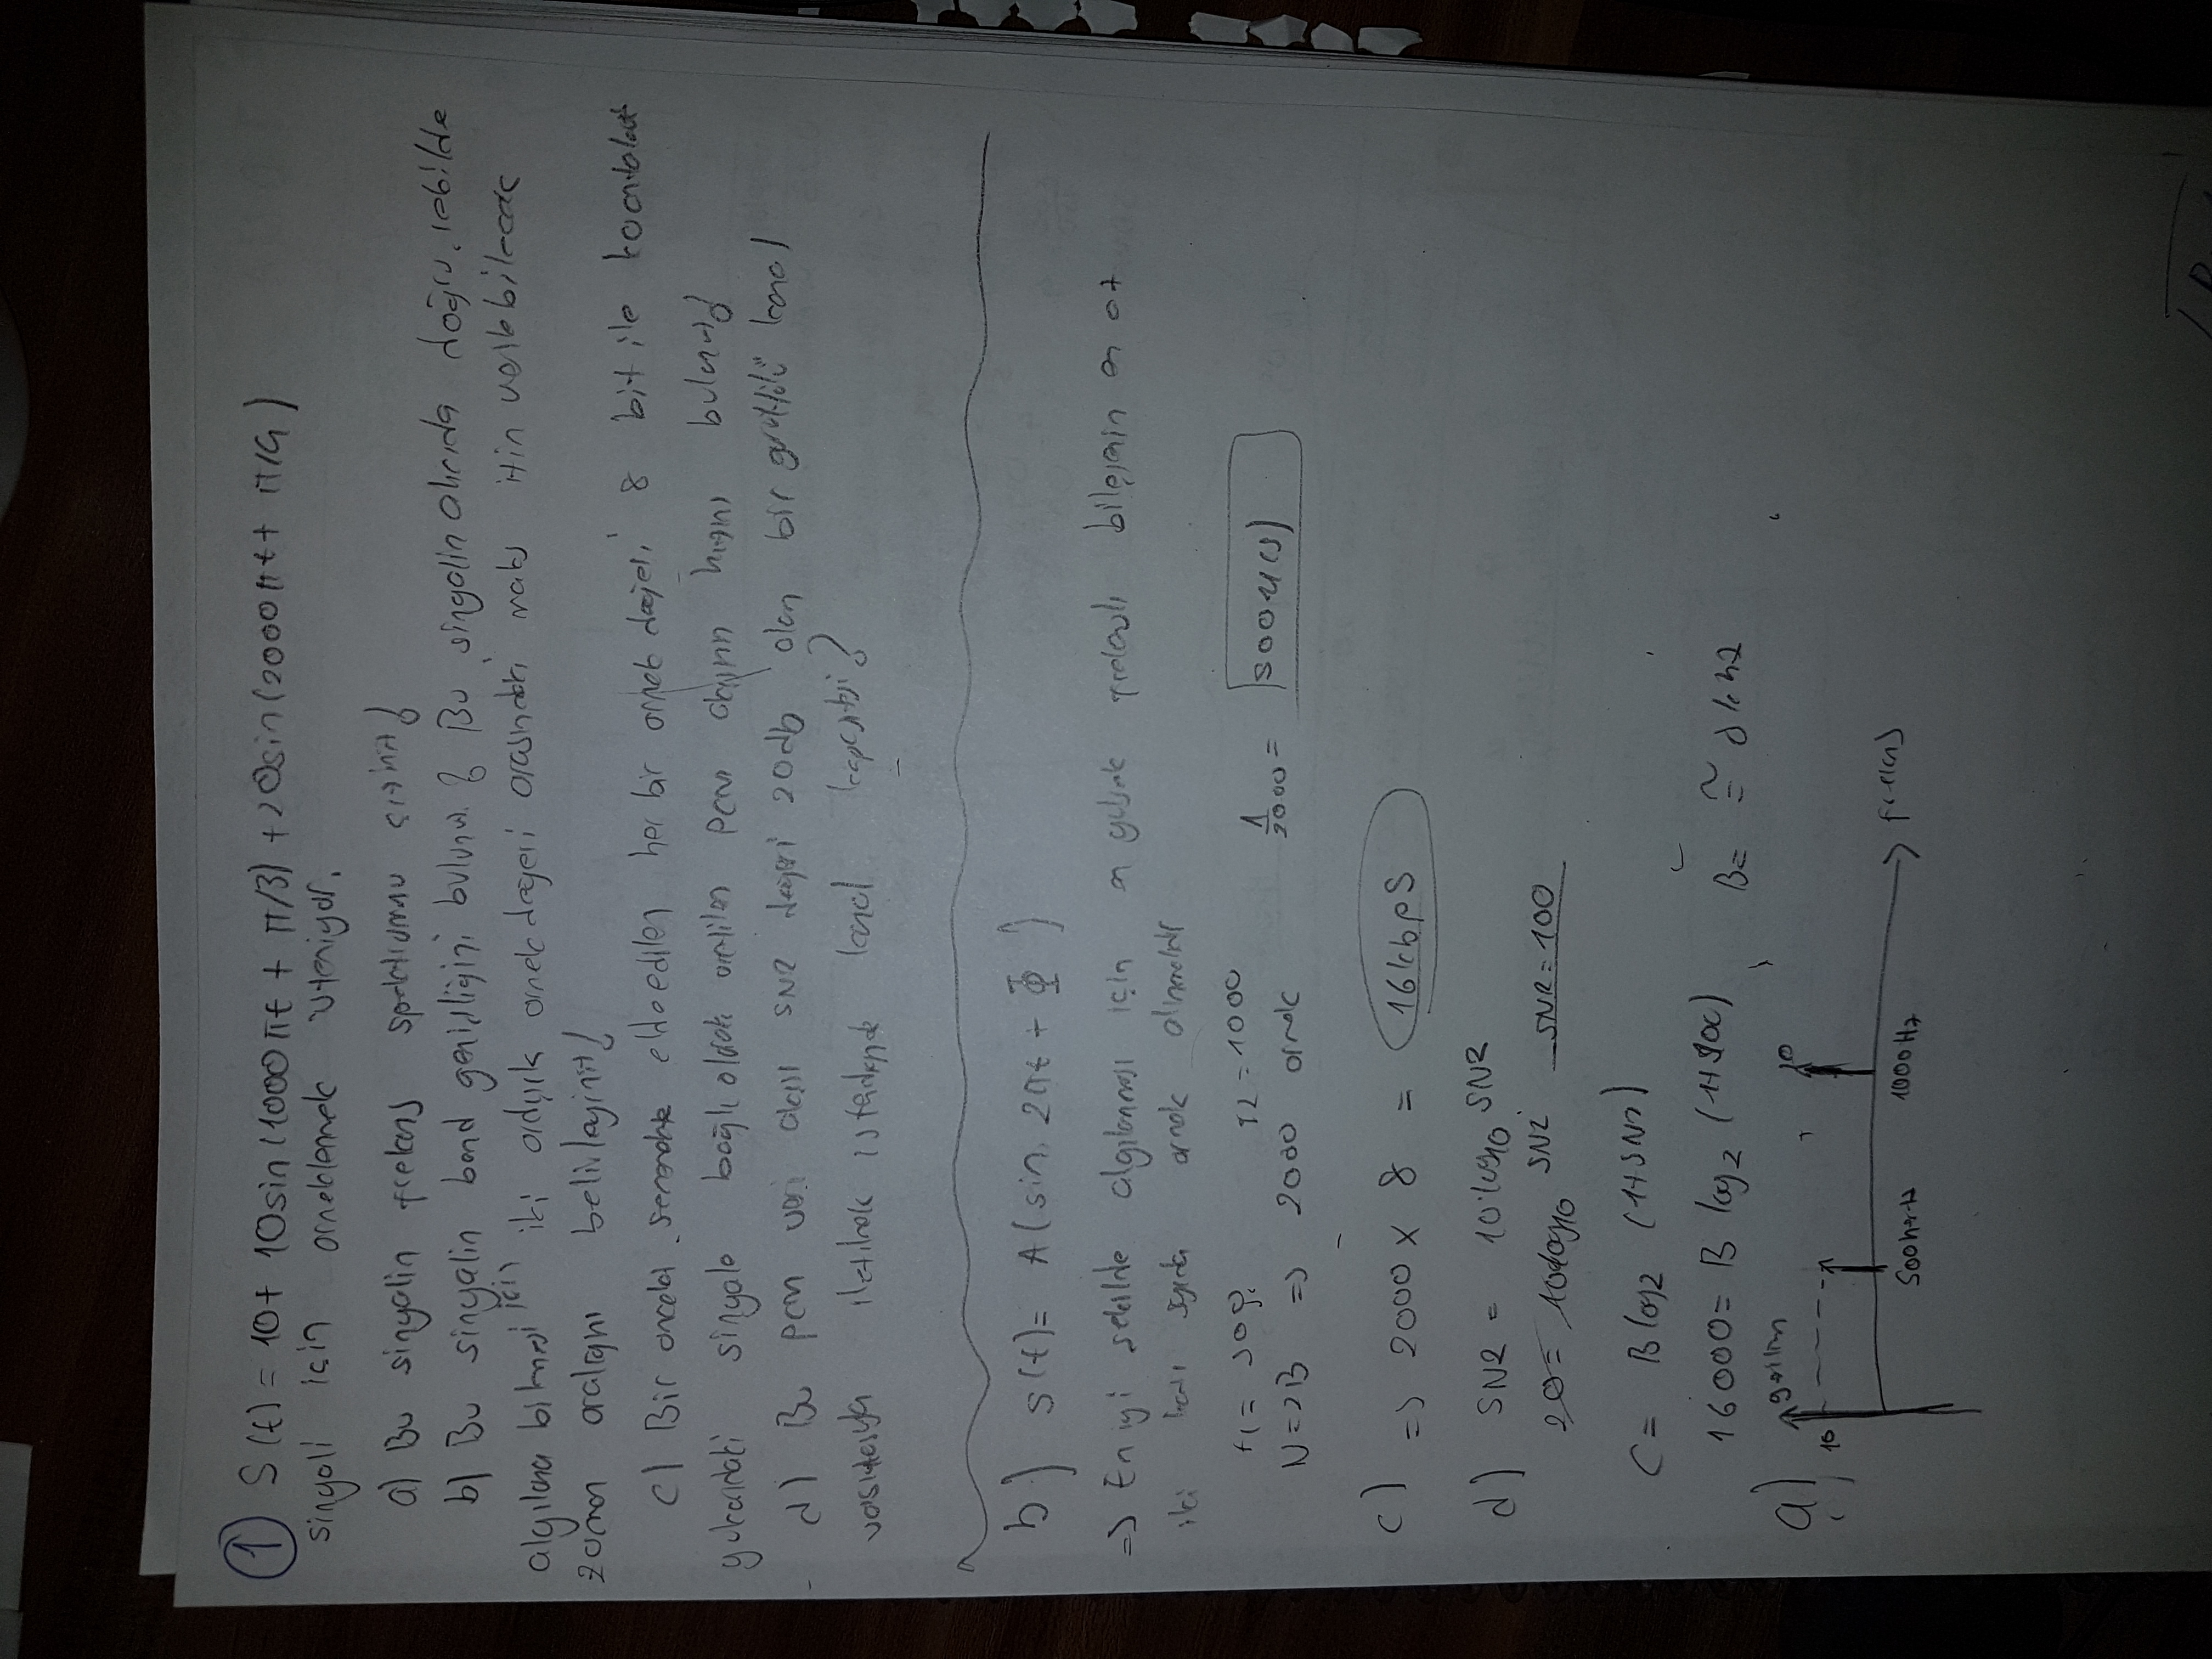 1 S(t) = 10+ 10sin(1000πt + π/3) + 20sin(2000πt + π/4)
singali için orneklemek isteniyor.
a) Bu sinyalin frekans spektrumnu çiziniz!
b) Bu sinyalin band genişliğini bulunuz. ? Bu singalin alıcıda doğru sekilde
algılana bilmesi için iki ardışık ornek degeri arasındaki maks izin verilebilecek
zaman aralıgını belirleyiniz!
c) Bir onceki elde edilen her bir ornek değeri 8 bit ile
yukarıdaki singale bağlı olarak uretilen pcm akışının hızını bulunuz?
d) Bu pcm veri akışı SNR değeri 20db olan bir gürültülü kanal
vasıtasıyla iletilmek istendiginde kanal kapasitesi?
b) S(t)= A(sin 2πt + Φ )
=> En iyi sekilde algılanması için en yuksek frekanslı bileşenin en az
iki katı sayıda ornek alınmalıdır
f1= 500 f2=1000
N=2B => 2000 ornek 1/2000 = 500u(s)
c) => 2000 x 8 = 16kbps
d) SNR = 10 log10 SNR
20= 10log10 SNR SNR=100
C= B log2 (1+SNR)
16000= B log2 (1+100) B= ≅ khz
a) genlim
10 20
500hertz 1000Hz frekans